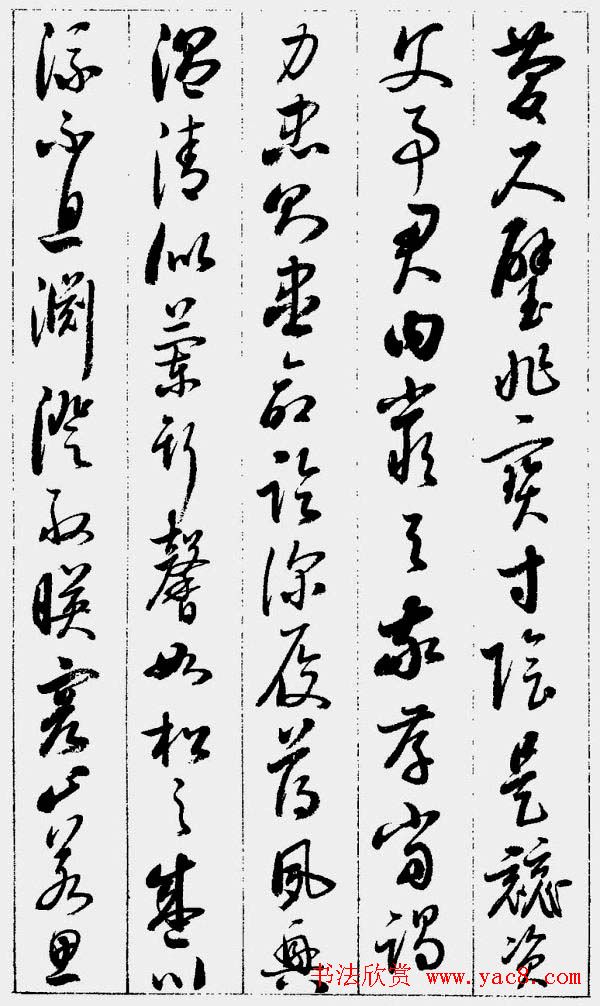 慶尺璧非寶寸陰是競資
父事君曰嚴與敬孝當竭
力忠則盡命臨深履薄夙興
溫清似蘭斯馨如松之盛川
流不息淵澄取映容止若思
书法欣赏 www.yac8.com